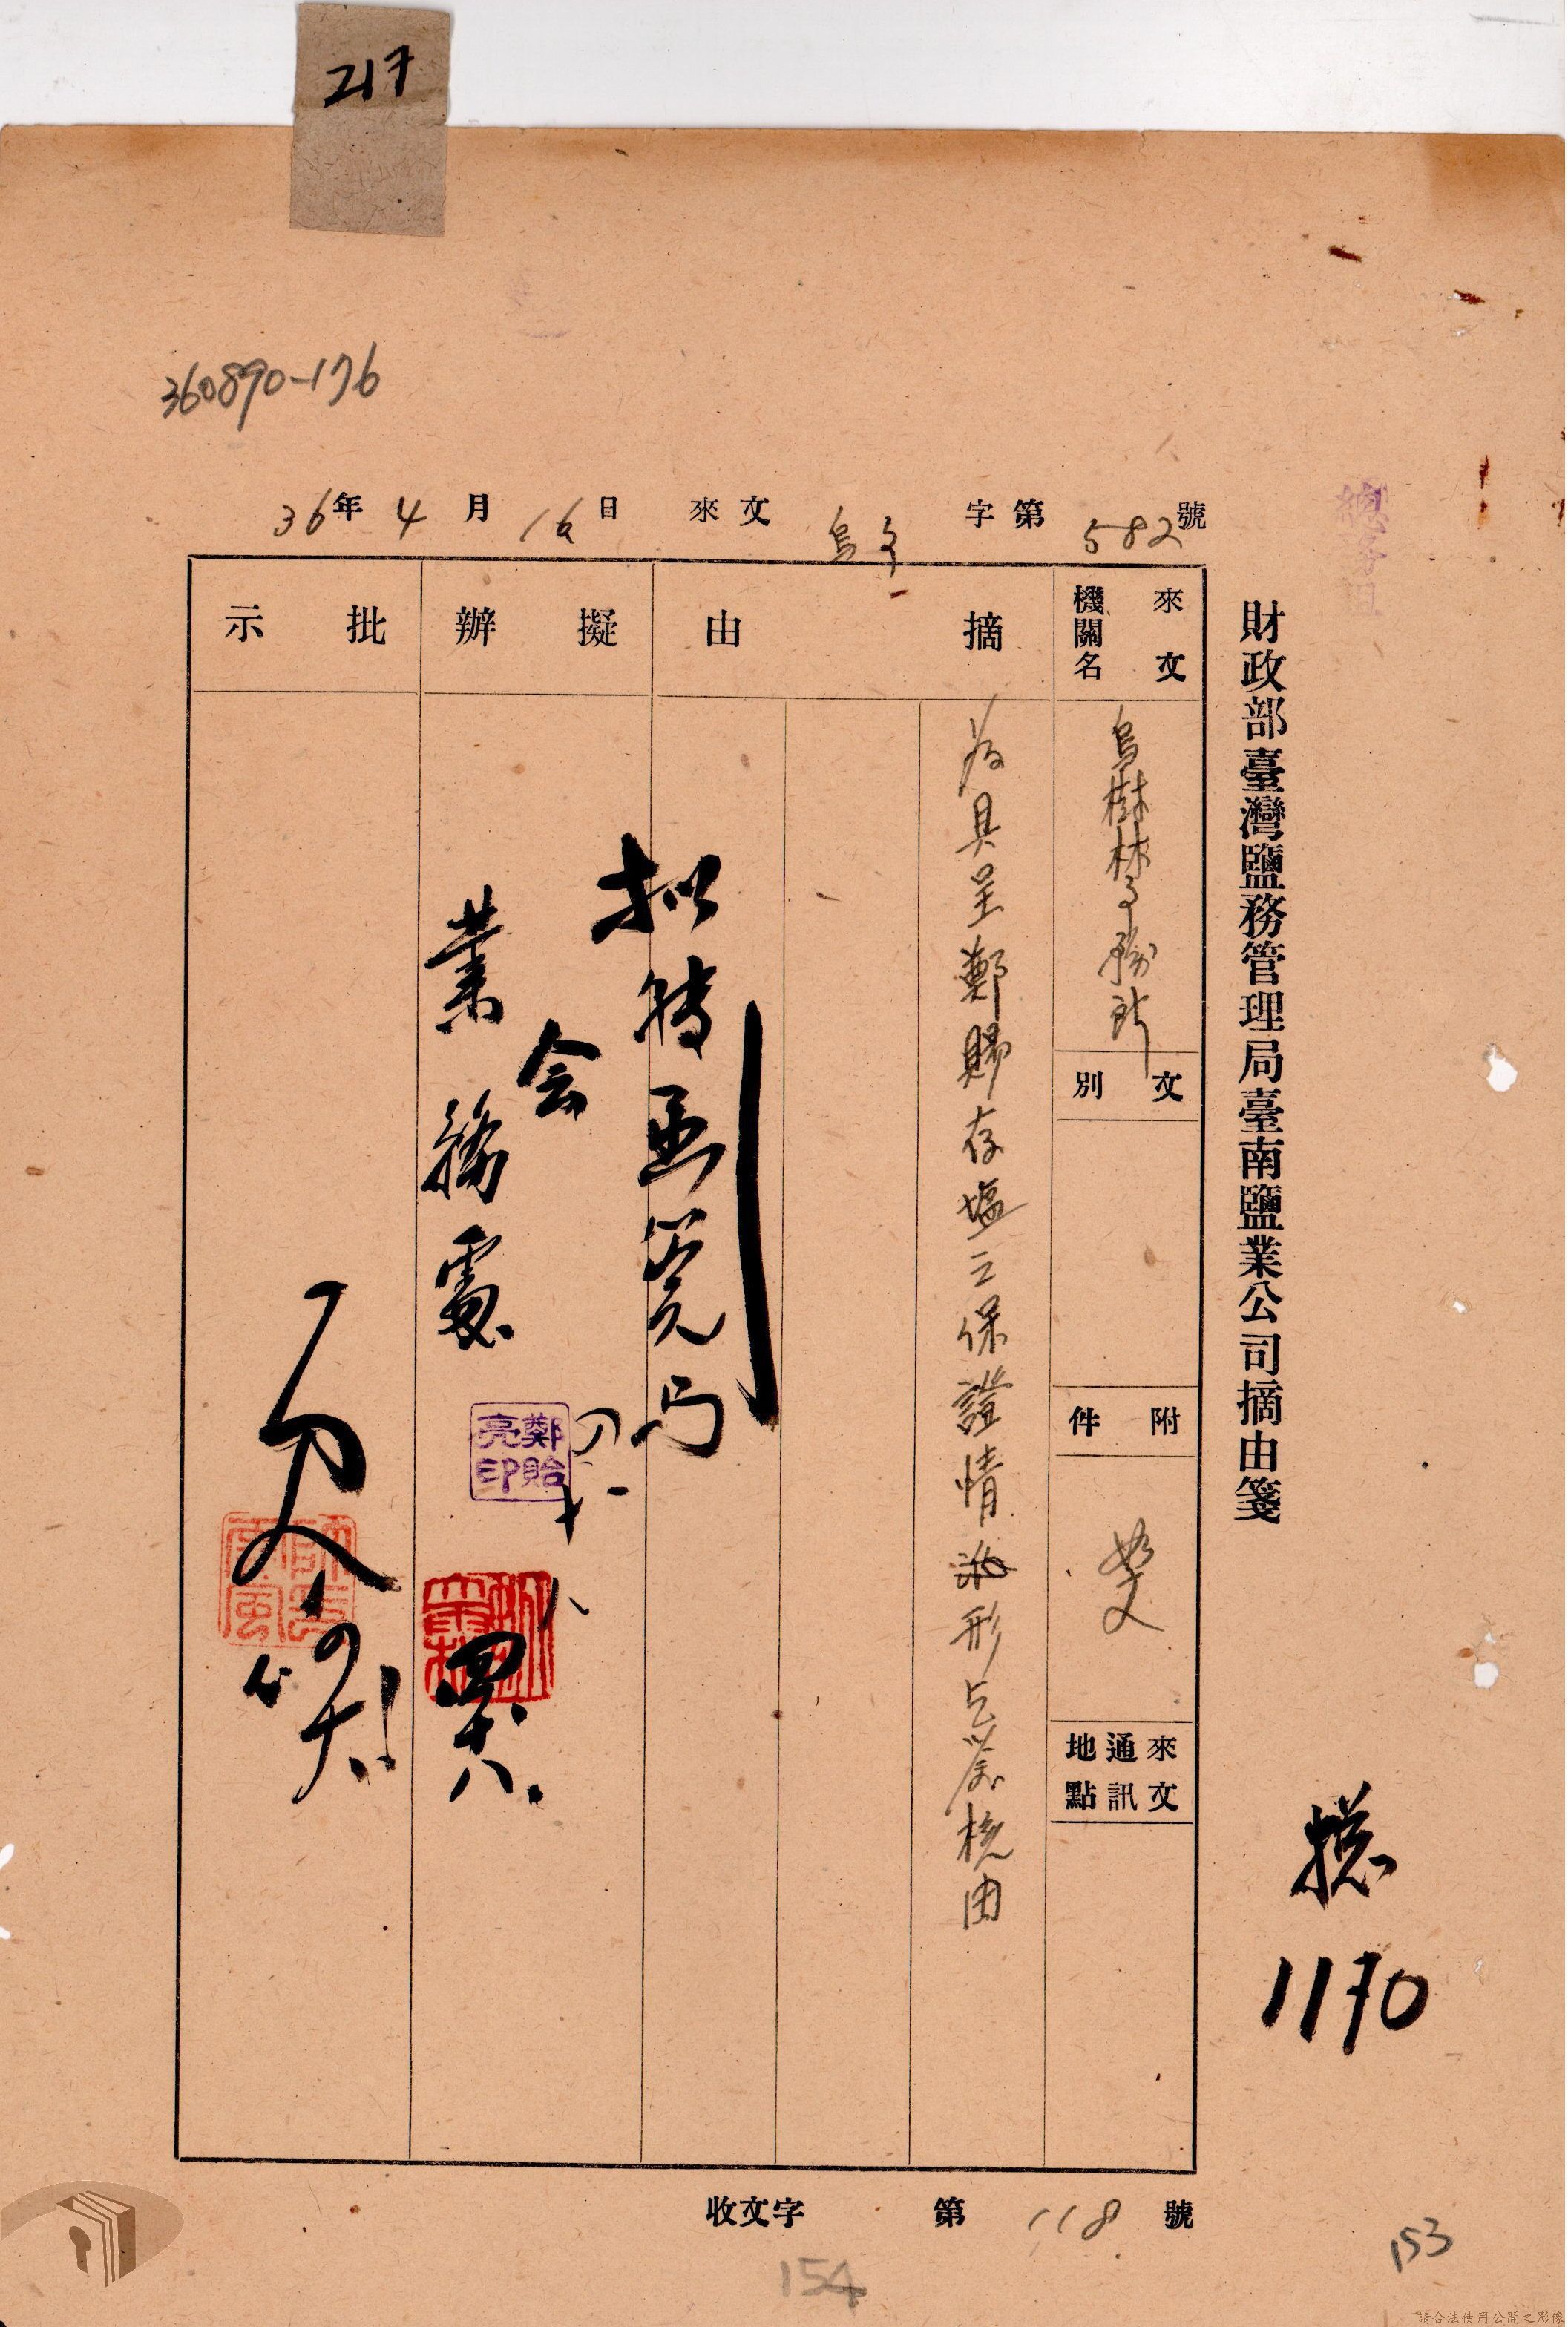 217
360890-176
總務組
財政部臺灣鹽務管理局臺南鹽業公司摘由箋
總
1170
36年4月16日 來文 烏文 字第 582 號
來文機關名
烏樹林事務所
文別
附件
如文
來文通訊地點
摘由
為具呈鄭賜存塩之保證情形乞鑒核由
擬辦
擬轉函
会
業務處
鄭貽亮印
四十八
批示
收文字 第 118 號
153
154
請合法使用公開之影像